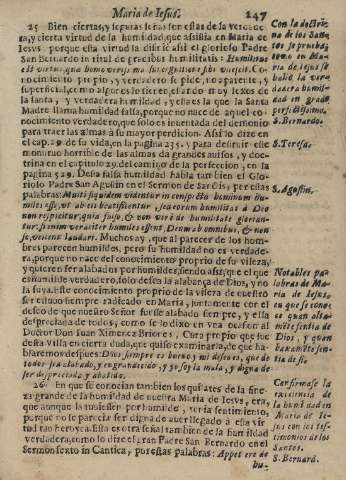 Maria de Iesus.
247
25 Bien ciertas, y seguras señas son estas de la verdade-
ra, y cierta virtud de la humildad, que assistia en Maria de
Iesvs, porque esta virtud la difinio assi el glorioso Padre
San Bernardo in titul de gradibus humilitatis: Humilitas
est virtus, qua homo verissima sui cognitione sibi vilescit. Co-
nocimiento proprio, y verdadero se pide, no aparente, y
superficial, como algunos le tienen, estando muy lexos de
la santa, y verdadera humildad, y esta es la que la Santa
Madre llama humildad falsa, porque no nace de aquel co-
nocimiento verdadero, que solo es inuentada del demonio
para traer las almas a su mayor perdicion. Assi lo dize en
el cap. 29 de su vida, en la pagina 235. y para destruir este
monstruo horrible de las almas da grandes auisos, y doc-
trina en el capitulo 29. del camino de la perfeccion, en la
pagina 529. Desta falsa humildad habla tambien el Glo-
rioso Padre San Agustin en el Sermon de Sanctis, por estas
palabras: Multi siquidem videntur in conspectu hominum hu-
miles esse, vt ab eis beatificentur, sed eorum humilitas à Deo
non respicitur, quia
se, vellent laudari. Muchos ay, que al parecer de los hom-
bres parecen humildes, pero su humildad no es verdade-
ra, porque no nace del conocimiento proprio de su vileza,
y quieren ser alabados por humildes, siendo assi, que el que
es humilde verdadero, solo dessea la alabança de Dios, y no
la suya. Este conocimiento proprio de la vileza de nuestro
ser estuuo siempre radicado en Maria, juntamente con el
desseo de que nuestro Señor fuesse alabado siempre, y ella
despreciada de todos, como se lo dixo en vna ocasion al
Doctor Don Iuan Ximenez Briones, Cura proprio que fue
desta Villa en cierta duda, que quiso examinarla, de que ha-
blaremos despues: Dios siempre es bueno, y mi desseo es, que de
todos sea alabado, y engrandecido, y yo soy la mala, y digna de
ser despreciada, y abatida.
26 En que se conocian tambien los quilates de la fine-
za grande de la humildad de nuestra Maria de Iesvs, era,
que aunque la tuuiessen por humilde, seria sentimiento,
porque no le parecia ser digna de auer llegado à esta vir-
tud tan heroyca. Esta es otra señal tambien de la humildad
verdadera, como lo dize el gran Padre San Bernardo en el
Sermon sexto in Cantica, por estas palabras: Appetere de
hu-
Con la doctri-
na de los San-
tos se prueba,
como en Ma-
ria de Iesus se
halló la verda-
dera humil-
dad en grado
perfectissimo.
S. Bernardo.
S. Teresa.
S. Agustin.
Notables pa-
labras de Maria
de Iesus, en
que se conoce
quan alta-
mēte sentia de
Dios, y quan
baxamēte sen-
tia de si.
Confirmase la
excelencia de
la humildad en
Maria de Ie-
sus con los tes-
timonios de los
Santos.
S. Bernard.